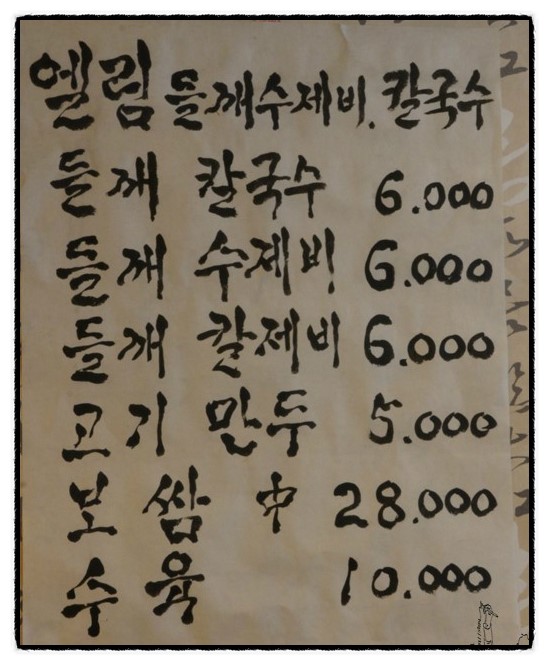 엘림 들깨수제비. 칼국수
들깨 칼국수 6.000
들깨 수제비 6.000
들깨 칼제비 6.000
고기 만두 5.000
보 쌈 中 28.000
수 육 10.000